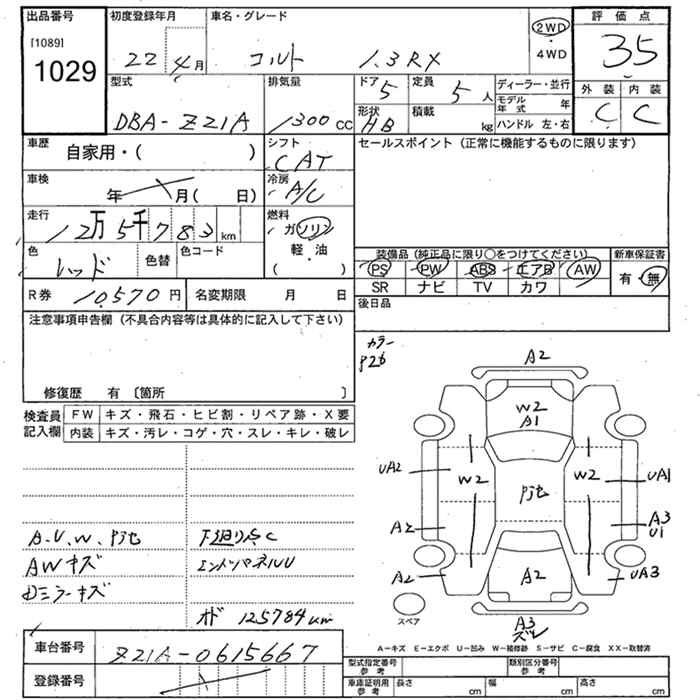 出品番号 初度登録年月 車名・グレード 評価点
[1089]
1029
22 4月 コルト 1.3RX
2WD
4WD
35
型式 排気量 ドア 定員 ディーラー・並行 外装 内装
DBA-Z21A 1300cc 5 5人
モデル年式 年
C C
形状 積載
HB kg ハンドル 左・右
車歴 シフト セールスポイント（正常に機能するものに限ります）
自家用・（ ） CAT
車検 冷房
年 月（ 日） A/C
走行 燃料
12万5千783km ガソリン
軽・油
（ ）
色 色替 色コード
レッド
装備品（純正品に限り○をつけてください） 新車保証書
PS PW ABS エアB AW 有・無
SR ナビ TV カワ
R券 10,570円 名変期限 月 日
後日品
注意事項申告欄（不具合内容等は具体的に記入して下さい）
修復歴 有〔箇所 〕
カラー
P26
検査員記入欄 FW キズ・飛石・ヒビ割・リペア跡・X要
内装 キズ・汚レ・コゲ・穴・スレ・キレ・破レ
A2
W2
A1
UA2 W2 W2 UA1
A2 A3
U1
A2 A2 UA3
A3
ズレ
スペア
A.U.W. 下廻り点C
AWキズ エンドパネルU
Dミラーキズ
オド 125784km
A－キズ E－エクボ U－凹み W－補修跡 S－サビ C－腐食 XX－取替済
車台番号 Z21A-0615667
登録番号
型式指定番号 参考 類別区分番号 参考
車庫証明用 参考 長さ cm 幅 cm 高さ cm